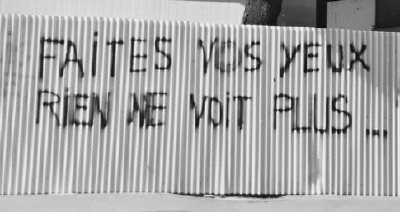 FAiTES VOS YEUX
RIEN NE VOIT PLUS...